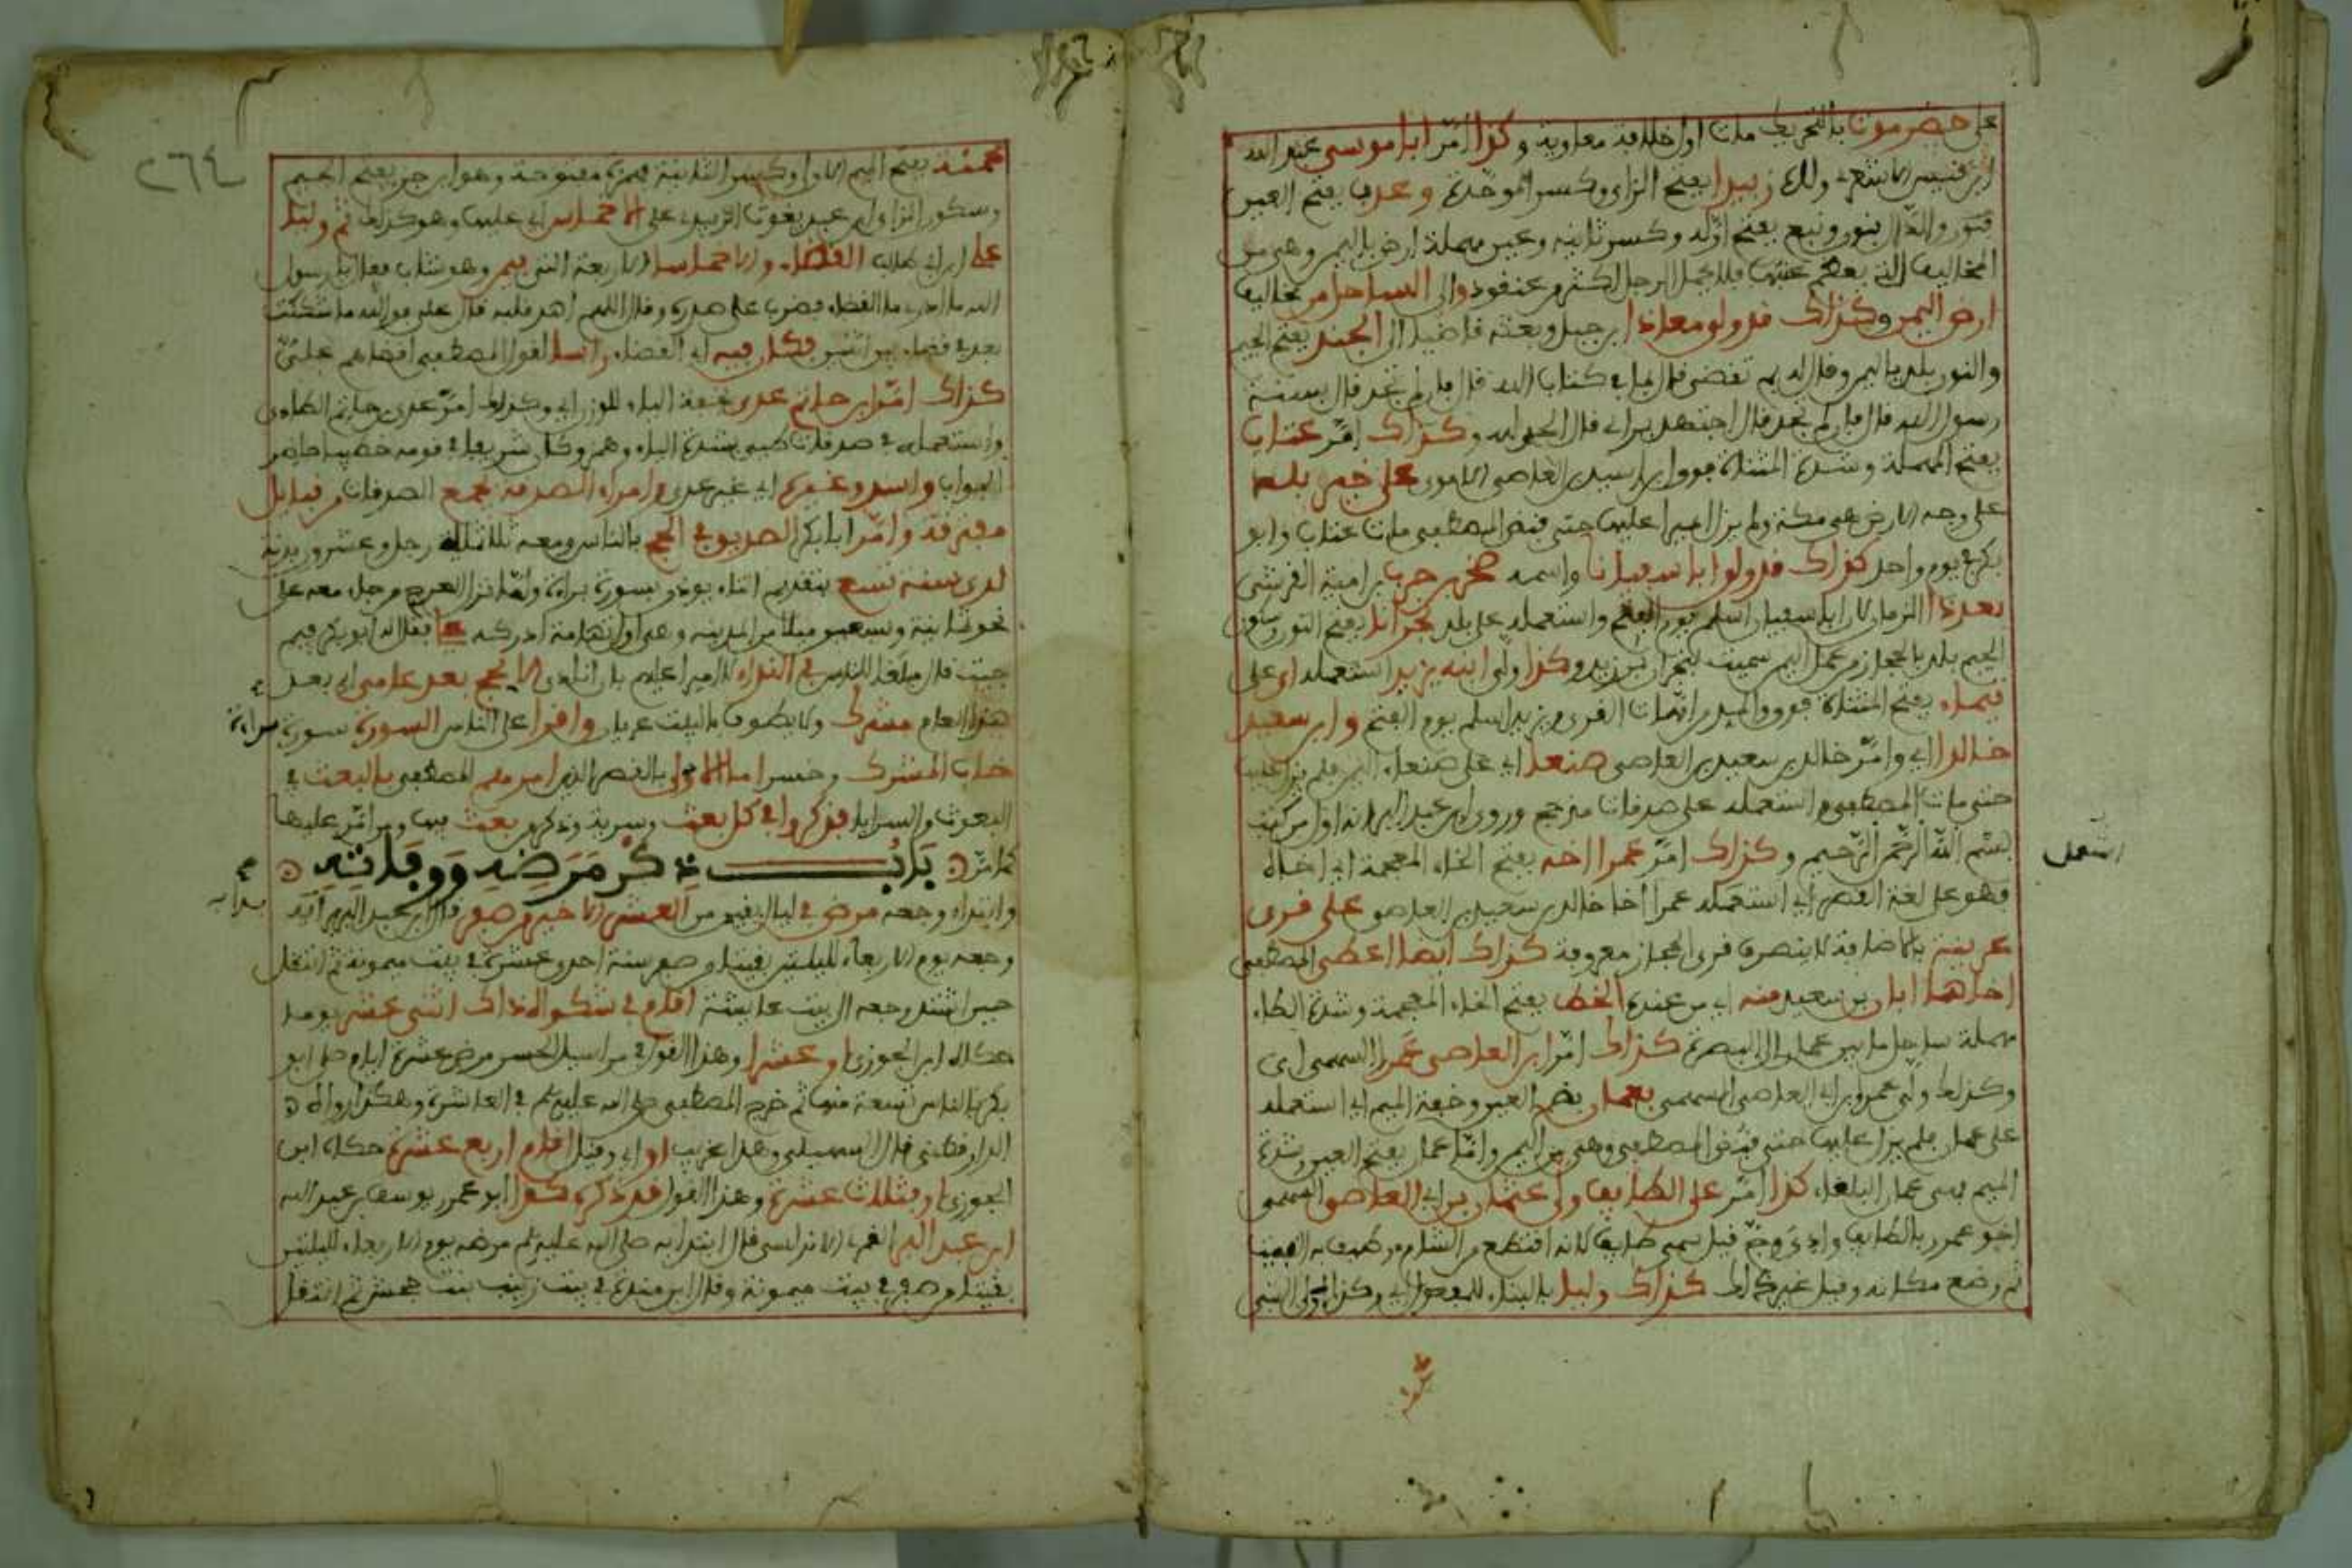 على حضرموت بالتحريك مات اول خلافة معاوية وكذا أمّر ابا موسى عبد الله
ابن قيس الاشعري ولاه زبيدا بفتح الزاي وكسر الموحدة وعدن بفتح العين
المخاليف التي
ارض اليمن وكذاك قد ولى معاذا ابن جبل وبعثه قاضيا الى الجند بفتح الجيم
والنون بلد باليمن وقال له بم تقضي قال بما في كتاب الله قال فان لم تجد قال بسنة
رسول الله قال فان لم تجد قال اجتهد برأي قال الحمد لله وكذاك امّر عتاب
بفتح المهملة وشدة المثناة فوق ابن اسيد بن العاصي الاموي على خير بلد
على وجه الارض هي مكة ولم يزل اميرا عليها حتى قبض المصطفى مات عتاب وابو
بكر في يوم واحد كذاك قد ولى ابا سفيانا واسمه صخر بن حرب بن امية القرشي
بعد ذا الزمان كان ابا سفيان اسلم يوم الفتح واستعمله على بلد نجرانا بفتح النون وسكون
الجيم بلد بالحجاز من عمل اليمن سميت بنجران بن زيد وكذا ولى ابنه يزيد استعمله اي على
تيماء بفتح المثناة فوق والمد من امهات القرى ويزيد اسلم يوم الفتح وابن سعيد
خالدا اي وامّر خالد بن سعيد بن العاصي صنعا اي على صنعاء اليمن فلم يزل عليها
حتى مات المصطفى واستعمله على صدقات مذحج وروى ابن عبد البر انه اول من كتب
بسم الله الرحمن الرحيم وكذاك امّر عمرا اخه بفتح الخاء المعجمة اي اخاه
فهو على لغة القصر اي استعمله عمرا اخا خالد بن سعيد بن العاصي على قرى
عرينة بالاضافة لا ينصرف قرى بالحجاز معروفة كذاك ايضا اعطى المصطفى
اخاهما ابان بن سعيد منه اي من عنده الخط بفتح الخاء المعجمة وشدة الطاء
مهملة ساحل ما بين عمان الى البصرة كذاك امّر ابن العاصي عمرا السهمي اي
وكذاك ولى عمرو بن العاصي السهمي بعمان بضم العين وخفة الميم اي استعمله
على عمان فلم يزل عليها حتى قبض المصطفى وهي من اليمن واما عمان بفتح العين وشدة
الميم فهي عمان البلقاء كذا امّر على الطايف ولى عثمان بن ابي العاصي
ثم وضع مكانه وقيل غير ذلك كذاك وليا بالبناء للمفعول اي وكذا ولى النبي
اتسعمل
٢٦٤
محمية بفتح الميم الاولى وكسر الثانية فمثناة مفتوحة وهو ابن جزء بفتح الجيم
وسكون الزاي ابن عبد يغوث الزبيدي على الاخماس اي عليها وهو كذاك ثم وليا
على ابن ابي طالب القضاء والاخماسا
الله ما ادري ما القضاء فضرب على صدره وقال اللهم اهد قلبه قال علي فوالله ما شككت
بعد في قضاء بين اثنين فكان فيه اي القضاء راسا لقول المصطفى اقضاهم عليّ
كذاك امّر ابن حاتم عدي بخفة الياء للوزن اي وكذلك امّر عدي بن حاتم الطاءي
واستعمله في صدقات طيئ بشدة الياء وهمز وكان شريفا في قومه خطيبا حاضر
الجواب واسد وغيرهم اي غير عدي من امراء الصدقة بجمع الصدقات من قبايل
مفترقة وامّر ابا بكر الصديق في الحج بالناس ومعه ثلاثماية رجل وعشرون بدنة
لدى سنة تسع
جيت قال مبلغا للناس في النداء لا اميرا عليهم بان انادي الا يحج بعد عامي اي بعد
هذا العام مشرك ولا يطوف بالبيت عريان واقرا على الناس السورة سورة براءة
خاب المشرك وخسر اما الاولى بالقصر الذين امرهم المصطفى بالبعث في
البعوث والسرايا فذكروا في كل بعث وسرية وذكر من بعث فيها ومن امّر عليها
كما مرّ باب ذكر مرضه ووفاته
وابتداء وجعه مرض في ليال بقيت من العشر الاخير من صفر قال ابن عبد البر انه
وجعه يوم الاربعاء لليلتين بقيتا من صفر سنة احدى عشرة في بيت ميمونة ثم انتقل
حين اشتد وجعه الى بيت عايشة اقام في شكواه ذاك اثنى عشر يوما
حكاه ابن الجوزي او عشرا وهذا القول في مراسيل الحسن مرض عشرة ايام صلى ابو
بكر بالناس تسعة منها ثم خرج المصطفى صلى الله عليه وسلم في العاشرة وهكذا رواه
الدارقطني قال السهيلي وهذا غريب او اي وقيل اقام اربع عشرة حكاه ابن
الجوزي او ثلاث عشرة وهذا القول قد ذكره كذا ابو عمر يوسف بن عبد الله
ابن عبد البر النمري الاندلسي قال ابتدا به صلى الله عليه وسلم مرضه يوم الاربعاء لليلتين
بقيتا من صفر في بيت ميمونة وقال ابن مندة في بيت زينب بنت جحش ثم انتقل